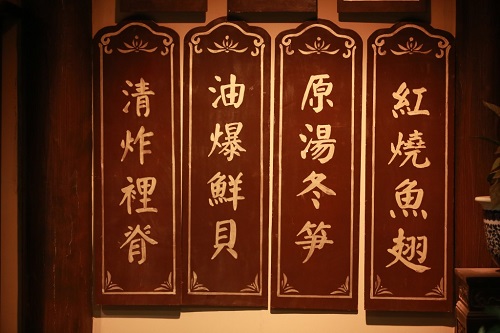 紅燒魚翅
原湯冬笋
油爆鮮貝
清炸裡脊